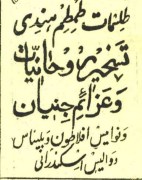 طلسمات طمطم هندی
تسخیر روحانیات
وعزائم جنیان
ونوامیس افلاطون وبلیناس
ذوالیس اسکندرانی